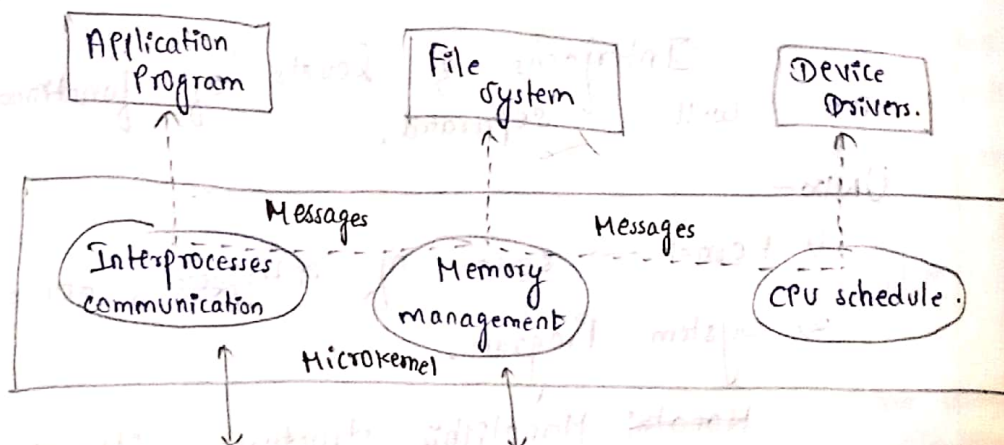 Application
Program
File
System
Device
Drivers.
Messages
Messages
Interprocesses
communication
Memory
management
CPU schedule.
Microkernel